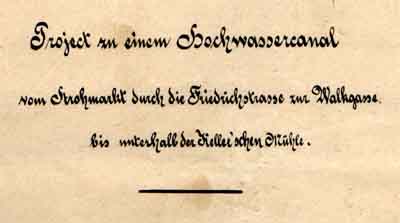 Project zu einem Hochwassercanal
vom Strohmarkt durch die Friedrichstrasse zur Walkgasse.
bis unterhalb der Keller'schen Mühle.